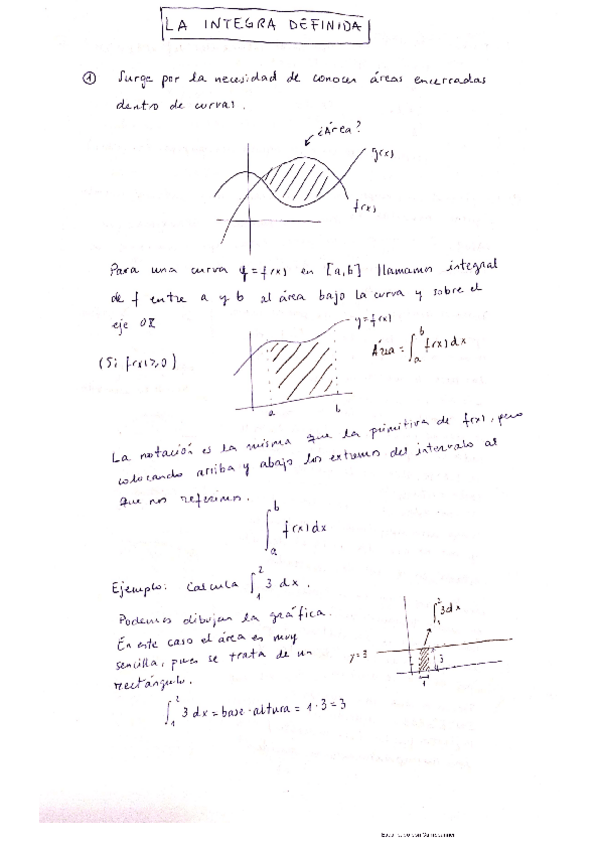 LA INTEGRA DEFINIDA
① Surge por la necesidad de conocer áreas encerradas
dentro de curvas.
¿Área?
g(x)
f(x)
Para una curva y=f(x) en [a,b] llamamos integral
de f entre a y b al área bajo la curva y sobre el
eje OX
y=f(x)
(Si f(x)≥0)
Área = ∫_a^b f(x)dx
a b
La notación es la misma que la primitiva de f(x), pero
colocando arriba y abajo los extremos del intervalo al
que nos referimos.
∫_a^b f(x)dx
Ejemplo: Calcula ∫_1^2 3 dx.
Podemos dibujar la gráfica.
En este caso el área es muy
sencilla, pues se trata de un
rectángulo.
∫_1^2 3dx
y=3
3
1
∫_1^2 3 dx = base · altura = 1·3 = 3